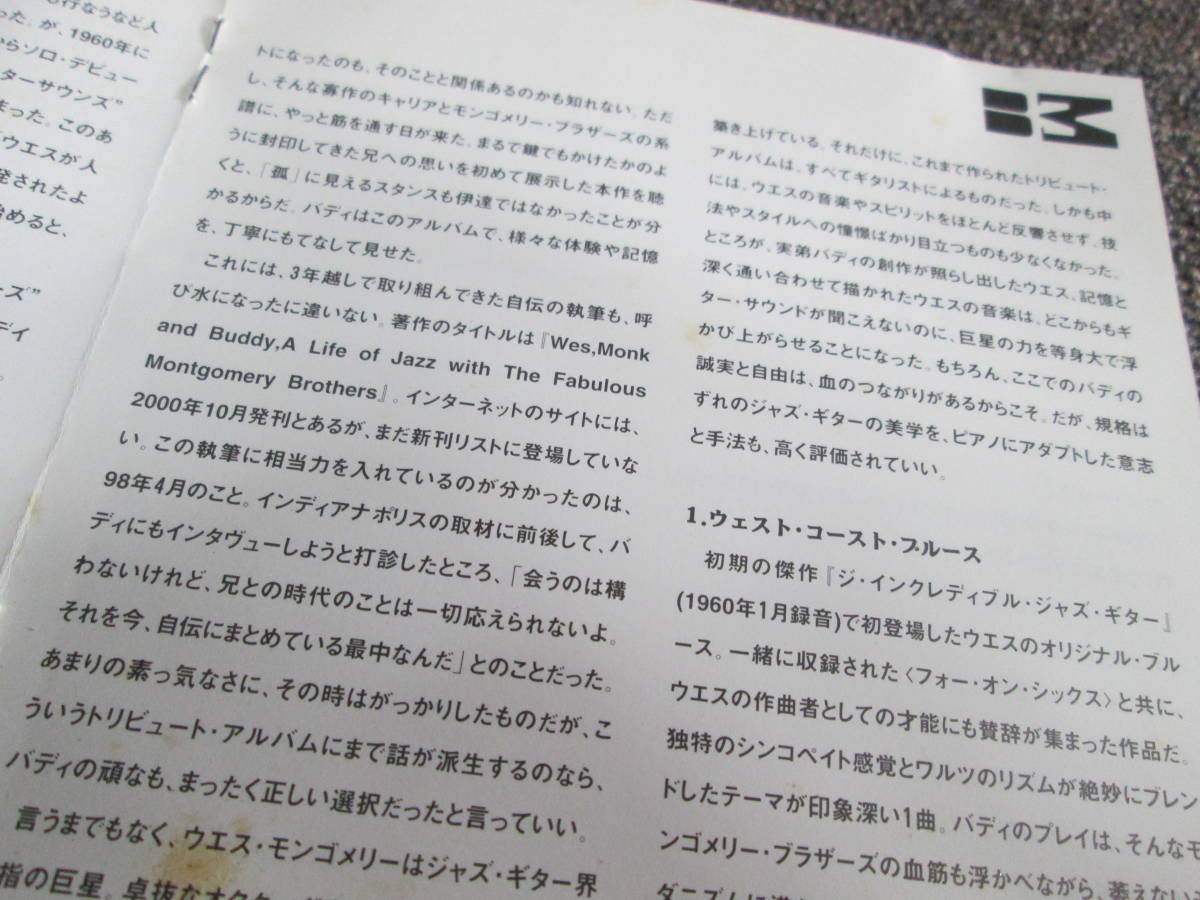 行なうなど人
った。が、1960年に
からソロ・デビュー
ターサウンズ”
まった。このあ
ウエスが人
発されたよ
始めると、
ーズ”
デイ
。
トになったのも、そのことと関係あるのかも知れない。ただ
し、そんな寡作のキャリアとモンゴメリー・ブラザーズの系
譜に、やっと筋を通す日が来た。まるで鍵でもかけたかのよ
うに封印してきた兄への思いを初めて展示した本作を聴
くと、「孤」に見えるスタンスも伊達ではなかったことが分
かるからだ。バディはこのアルバムで、様々な体験や記憶
を、丁寧にもてなして見せた。
これには、3年越しで取り組んできた自伝の執筆も、呼
び水になったに違いない。著作のタイトルは『Wes,Monk
and Buddy,A Life of Jazz with The Fabulous
Montgomery Brothers』。インターネットのサイトには、
2000年10月発刊とあるが、まだ新刊リストに登場していな
い。この執筆に相当力を入れているのが分かったのは、
98年4月のこと。インディアナポリスの取材に前後して、バ
ディにもインタヴューしようと打診したところ、「会うのは構
わないけれど、兄との時代のことは一切応えられないよ。
それを今、自伝にまとめている最中なんだ」とのことだった。
あまりの素っ気なさに、その時はがっかりしたものだが、こ
ういうトリビュート・アルバムにまで話が派生するのなら、
バディの頑なも、まったく正しい選択だったと言っていい。
言うまでもなく、ウエス・モンゴメリーはジャズ・ギター界
指の巨星。卓抜なオクターヴ
築き上げている。それだけに、これまで作られたトリビュート・
アルバムは、すべてギタリストによるものだった。しかも中
には、ウエスの音楽やスピリットをほとんど反響させず、技
法やスタイルへの憧憬ばかり目立つものも少なくなかった。
ところが、実弟バディの創作が照らし出したウエス、記憶と
深く通い合わせて描かれたウエスの音楽は、どこからもギ
ター・サウンドが聞こえないのに、巨星の力を等身大で浮
かび上がらせることになった。もちろん、ここでのバディの
誠実と自由は、血のつながりがあるからこそ。だが、規格は
ずれのジャズ・ギターの美学を、ピアノにアダプトした意志
と手法も、高く評価されていい。
1.ウェスト・コースト・ブルース
初期の傑作『ジ・インクレディブル・ジャズ・ギター』
(1960年1月録音)で初登場したウエスのオリジナル・ブル
ース。一緒に収録された〈フォー・オン・シックス〉と共に、
ウエスの作曲者としての才能にも賛辞が集まった作品だ。
独特のシンコペイト感覚とワルツのリズムが絶妙にブレン
ドしたテーマが印象深い1曲。バディのプレイは、そんなモ
ンゴメリー・ブラザーズの血筋も浮かべながら、萎えない
ダニズムに